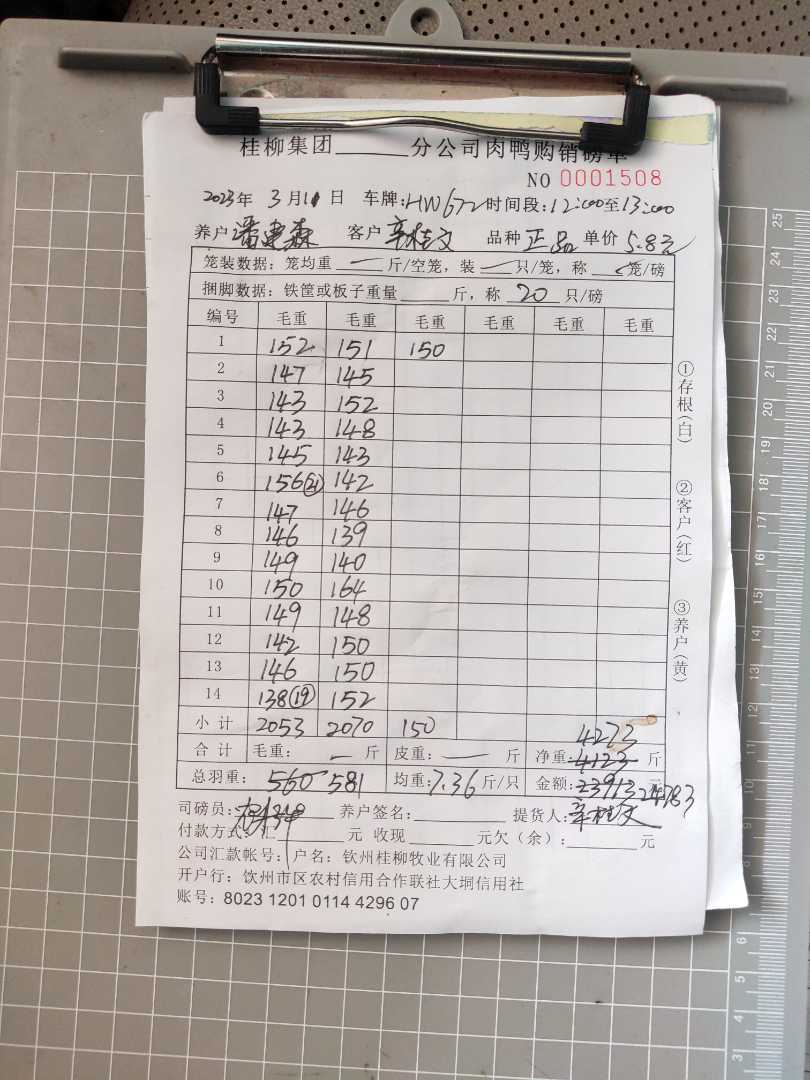 桂柳集团______分公司肉鸭购销磅单
NO 0001508
2023年 3月11日 车牌:HW672 时间段:12:00至13:00
养户:潘建森 客户 辛桂文 品种 正品 单价 5.8元
笼装数据: 笼均重 — 斤/空笼, 装 — 只/笼, 称 笼/磅
捆脚数据: 铁筐或板子重量 ____ 斤, 称 20 只/磅
编号 毛重 毛重 毛重 毛重 毛重 毛重
1 152 151 150
2 147 145
3 143 152
4 143 148
5 145 143
6 156㉑ 142
7 147 146
8 146 139
9 149 140
10 150 164
11 149 148
12 142 150
13 146 150
14 138⑲ 152
小计 2053 2070 150 4273
合计 毛重: — 斤 皮重: — 斤 净重: 4123 斤
总羽重: 560 581 均重: 7.36 斤/只 金额: 23913 元 24783
司磅员: 养户签名: 提货人: 辛桂文
付款方式: 汇 元 收现 元欠(余): 元
公司汇款帐号: 户名: 钦州桂柳牧业有限公司
开户行: 饮州市区农村信用合作联社大垌信用社
账号: 8023 1201 0114 4296 07
①存根(白)
②客户(红)
③养户(黄)
25
24
23
22
21
20
19
18
17
16
15
14
13
12
6
5
4
3